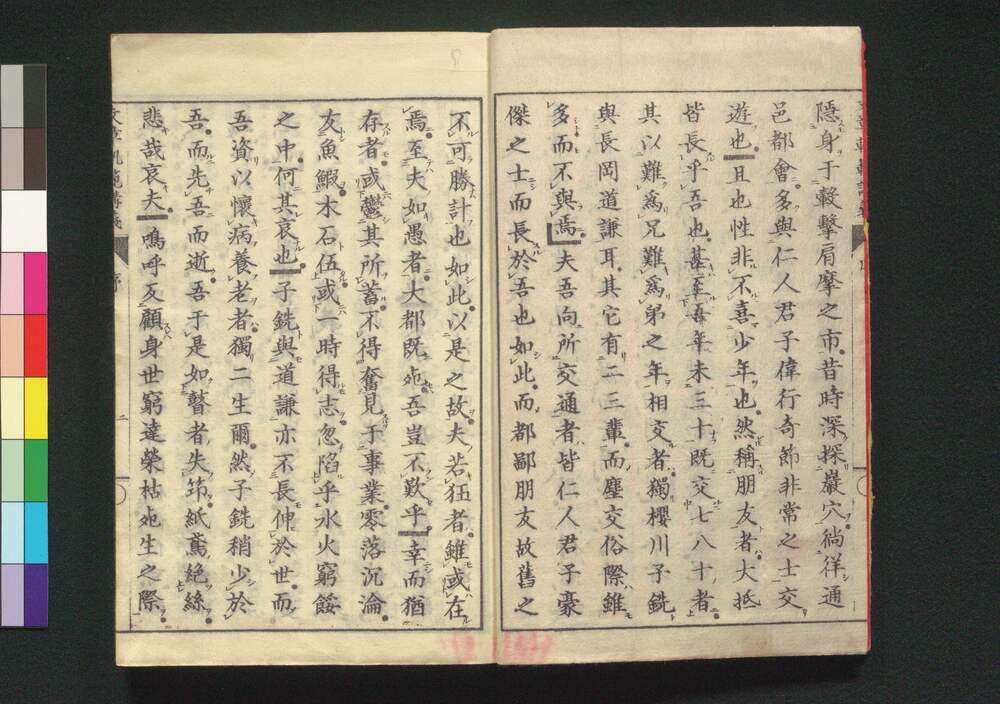 隱身于轂擊肩摩之市昔時深探巖穴徜徉通
邑都會多與仁人君子偉行奇節非常之士交
遊也且也性非不喜少年也然稱朋友者大抵
皆長乎吾也甚至吾年未三十既交七八十者
其以難爲兄難爲弟之年相交者獨櫻川子銑
與長岡道謙耳其它有二三輩而塵交俗際雖
多而不與焉夫吾向所交通者皆仁人君子豪
傑之士而長於吾也如此而都鄙朋友故舊之
不可勝計也如此以是之故夫若狂者雖或在
焉至夫如愚者大都既死吾豈不歎乎幸而猶
存者或鬱其所蓄不得奮見于事業零落沉淪
友魚鰕木石伍或一時得志忽陷乎水火窮餒
之中何其哀也子銑與道謙亦不長伸於世而
吾資以懷病養老者獨二生爾然子銑稍少於
吾而先吾而逝吾于是如瞽者失筇紙鳶絶絲
悲哉哀夫嗚呼反顧身世窮達榮枯死生之際
序
二